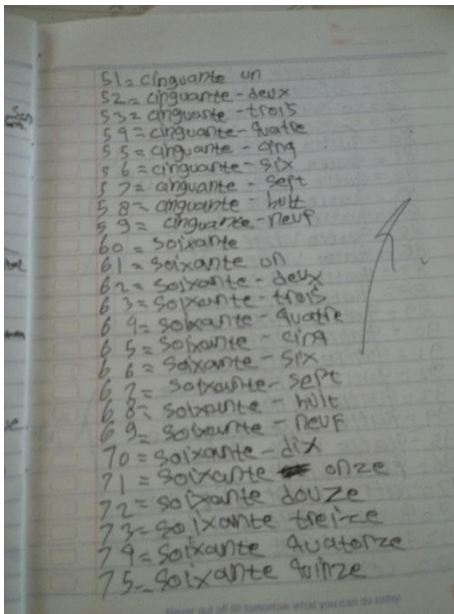 51= cinquante un
52= cinquante-deux
53= cinquante-trois
54= cinquante-quatre
55= cinquante-cinq
56= cinquante-six
57= cinquante-sept
58= cinquante-huit
59= cinquante-neuf
60 = soixante
61 = soixante un
62= soixante-deux
63= soixante-trois
64= soixante-quatre
65= soixante-cinq
66= soixante-six
67= soixante-sept
68= soixante-huit
69= soixante-neuf
70= soixante-dix
71= soixante onze
72= soixante douze
73= soixante treize
74= soixante quatorze
75= soixante quinze
Never put off till tomorrow what you can do today